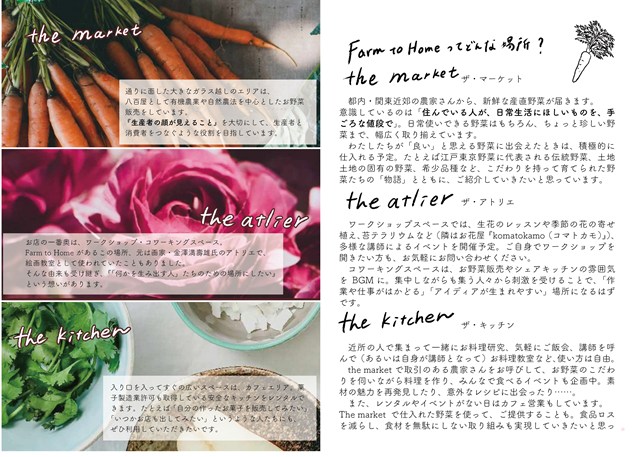 the market
通りに面した大きなガラス越しのエリアは、
八百屋として有機農業や自然農法を中心としたお野菜
販売をしています。
「生産者の顔が見えること」を大切にして、生産者と
消費者をつなぐような役割を目指しています。
the atlier
お店の一番奥は、ワークショップ・コワーキングスペース。
Farm to Home があるこの場所、元は画家・金澤満壽雄氏のアトリエで、
絵画教室として使われていたこともありました。
そんな由来も受け継ぎ、「「何かを生み出す人」たちのための場所にしたい」
という想いがあります。
the kitchen
入り口を入ってすぐの広いスペースは、カフェエリア。菓
子製造業許可も取得している安全なキッチンをレンタルで
きます。たとえば「自分の作ったお菓子を販売してみたい」
「いつかお店も出してみたい」というような人たちにも、
ぜひ利用していただきたいです。
Farm to Home ってどんな場所？
the market ザ・マーケット
都内・関東近郊の農家さんから、新鮮な産直野菜が届きます。
意識しているのは「住んでいる人が、日常生活にほしいものを、手
ごろな値段で」。日常使いできる野菜はもちろん、ちょっと珍しい野
菜まで、幅広く取り揃えています。
わたしたちが「良い」と思える野菜に出会えたときは、積極的に
仕入れる予定。たとえば江戸東京野菜に代表される伝統野菜、土地
土地の固有の野菜、希少品種など、こだわりを持って育てられた野
菜たちの「物語」とともに、ご紹介していきたいと思っています。
the atlier ザ・アトリエ
ワークショップスペースでは、生花のレッスンや季節の花の寄せ
植え、苔テラリウムなど（隣はお花屋『komatokamo（コマトカモ）』）、
多様な講師によるイベントを開催予定。ご自身でワークショップを
開きたい方も、お気軽にお問い合わせください。
コワーキングスペースは、お野菜販売やシェアキッチンの雰囲気
を BGM に。集中しながらも集う人々から刺激を受けることで、「作
業や仕事がはかどる」「アイディアが生まれやすい」場所になるはず
です。
the kitchen ザ・キッチン
近所の人で集まって一緒にお料理研究、気軽にご飯会、講師を呼
んで（あるいは自身が講師となって）お料理教室など、使い方は自由。
the market で取引のある農家さんをお呼びして、お野菜のこだわ
りを伺いながら料理を作り、みんなで食べるイベントも企画中。素
材の魅力を再発見したり、意外なレシピに出会ったり……。
また、レンタルやイベントがない日はカフェ営業もしています。
The market で仕入れた野菜を使って、ご提供することも。食品ロス
を減らし、食材を無駄にしない取り組みも実現していきたいと思っ